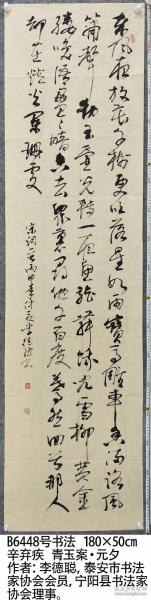 东风夜放花千树更吹落星如雨宝马雕车香满路凤
箫声动玉壶光转一夜鱼龙舞蛾儿雪柳黄金
缕笑语盈盈暗香去众里寻他千百度蓦然回首那人
却在灯火阑珊处
B6448号书法 180×50cm
辛弃疾 青玉案·元夕
作者:李德聪,泰安市书法
家协会会员,宁阳县书法家
协会理事。